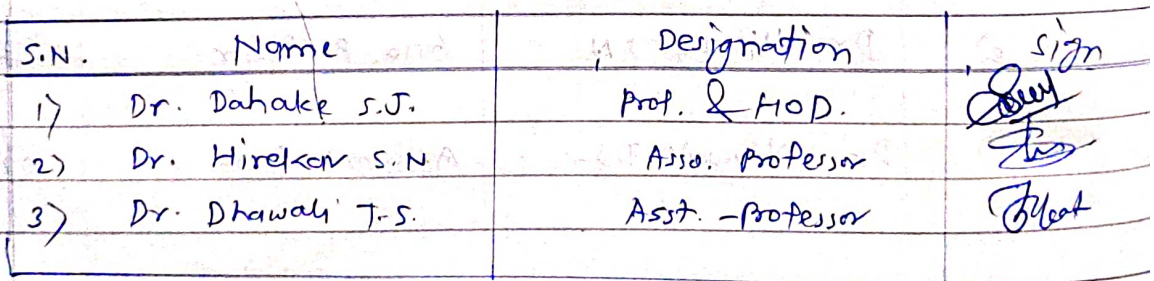 S.N. Name Designation Sign
1) Dr. Dahake S.J. Prof. & HOD.
2) Dr. Hirekar S.N Asso. Professor
3) Dr. Dhawali T.S. Asst. -Professor